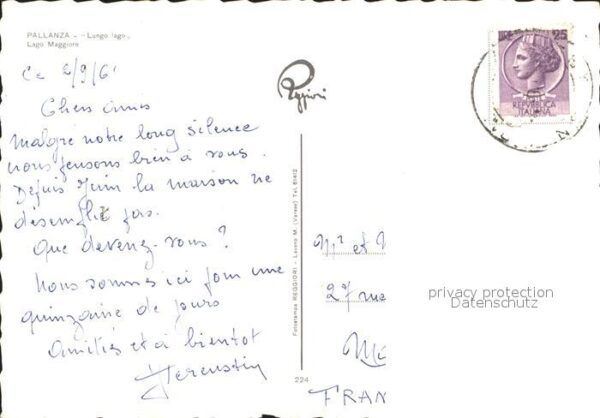 PALLANZA - "Lungo lago"
Lago Maggiore
Ce 2/9/61
Chers amis
malgre notre long silence
nous pensons bien à vous.
Depuis Juin la maison ne
desemplit pas.
Que devenez-vous ?
Nous sommes ici pour une
quinzaine de jours
Amitiés et à bientot
Reggiori
Fotocrampa REGGIORI - Laveno M. (Varese) Tel. 61412
224
25
REPVBBLICA
ITALIANA
Mr et
27 rue
ME
FRAN
privacy protection
Datenschutz